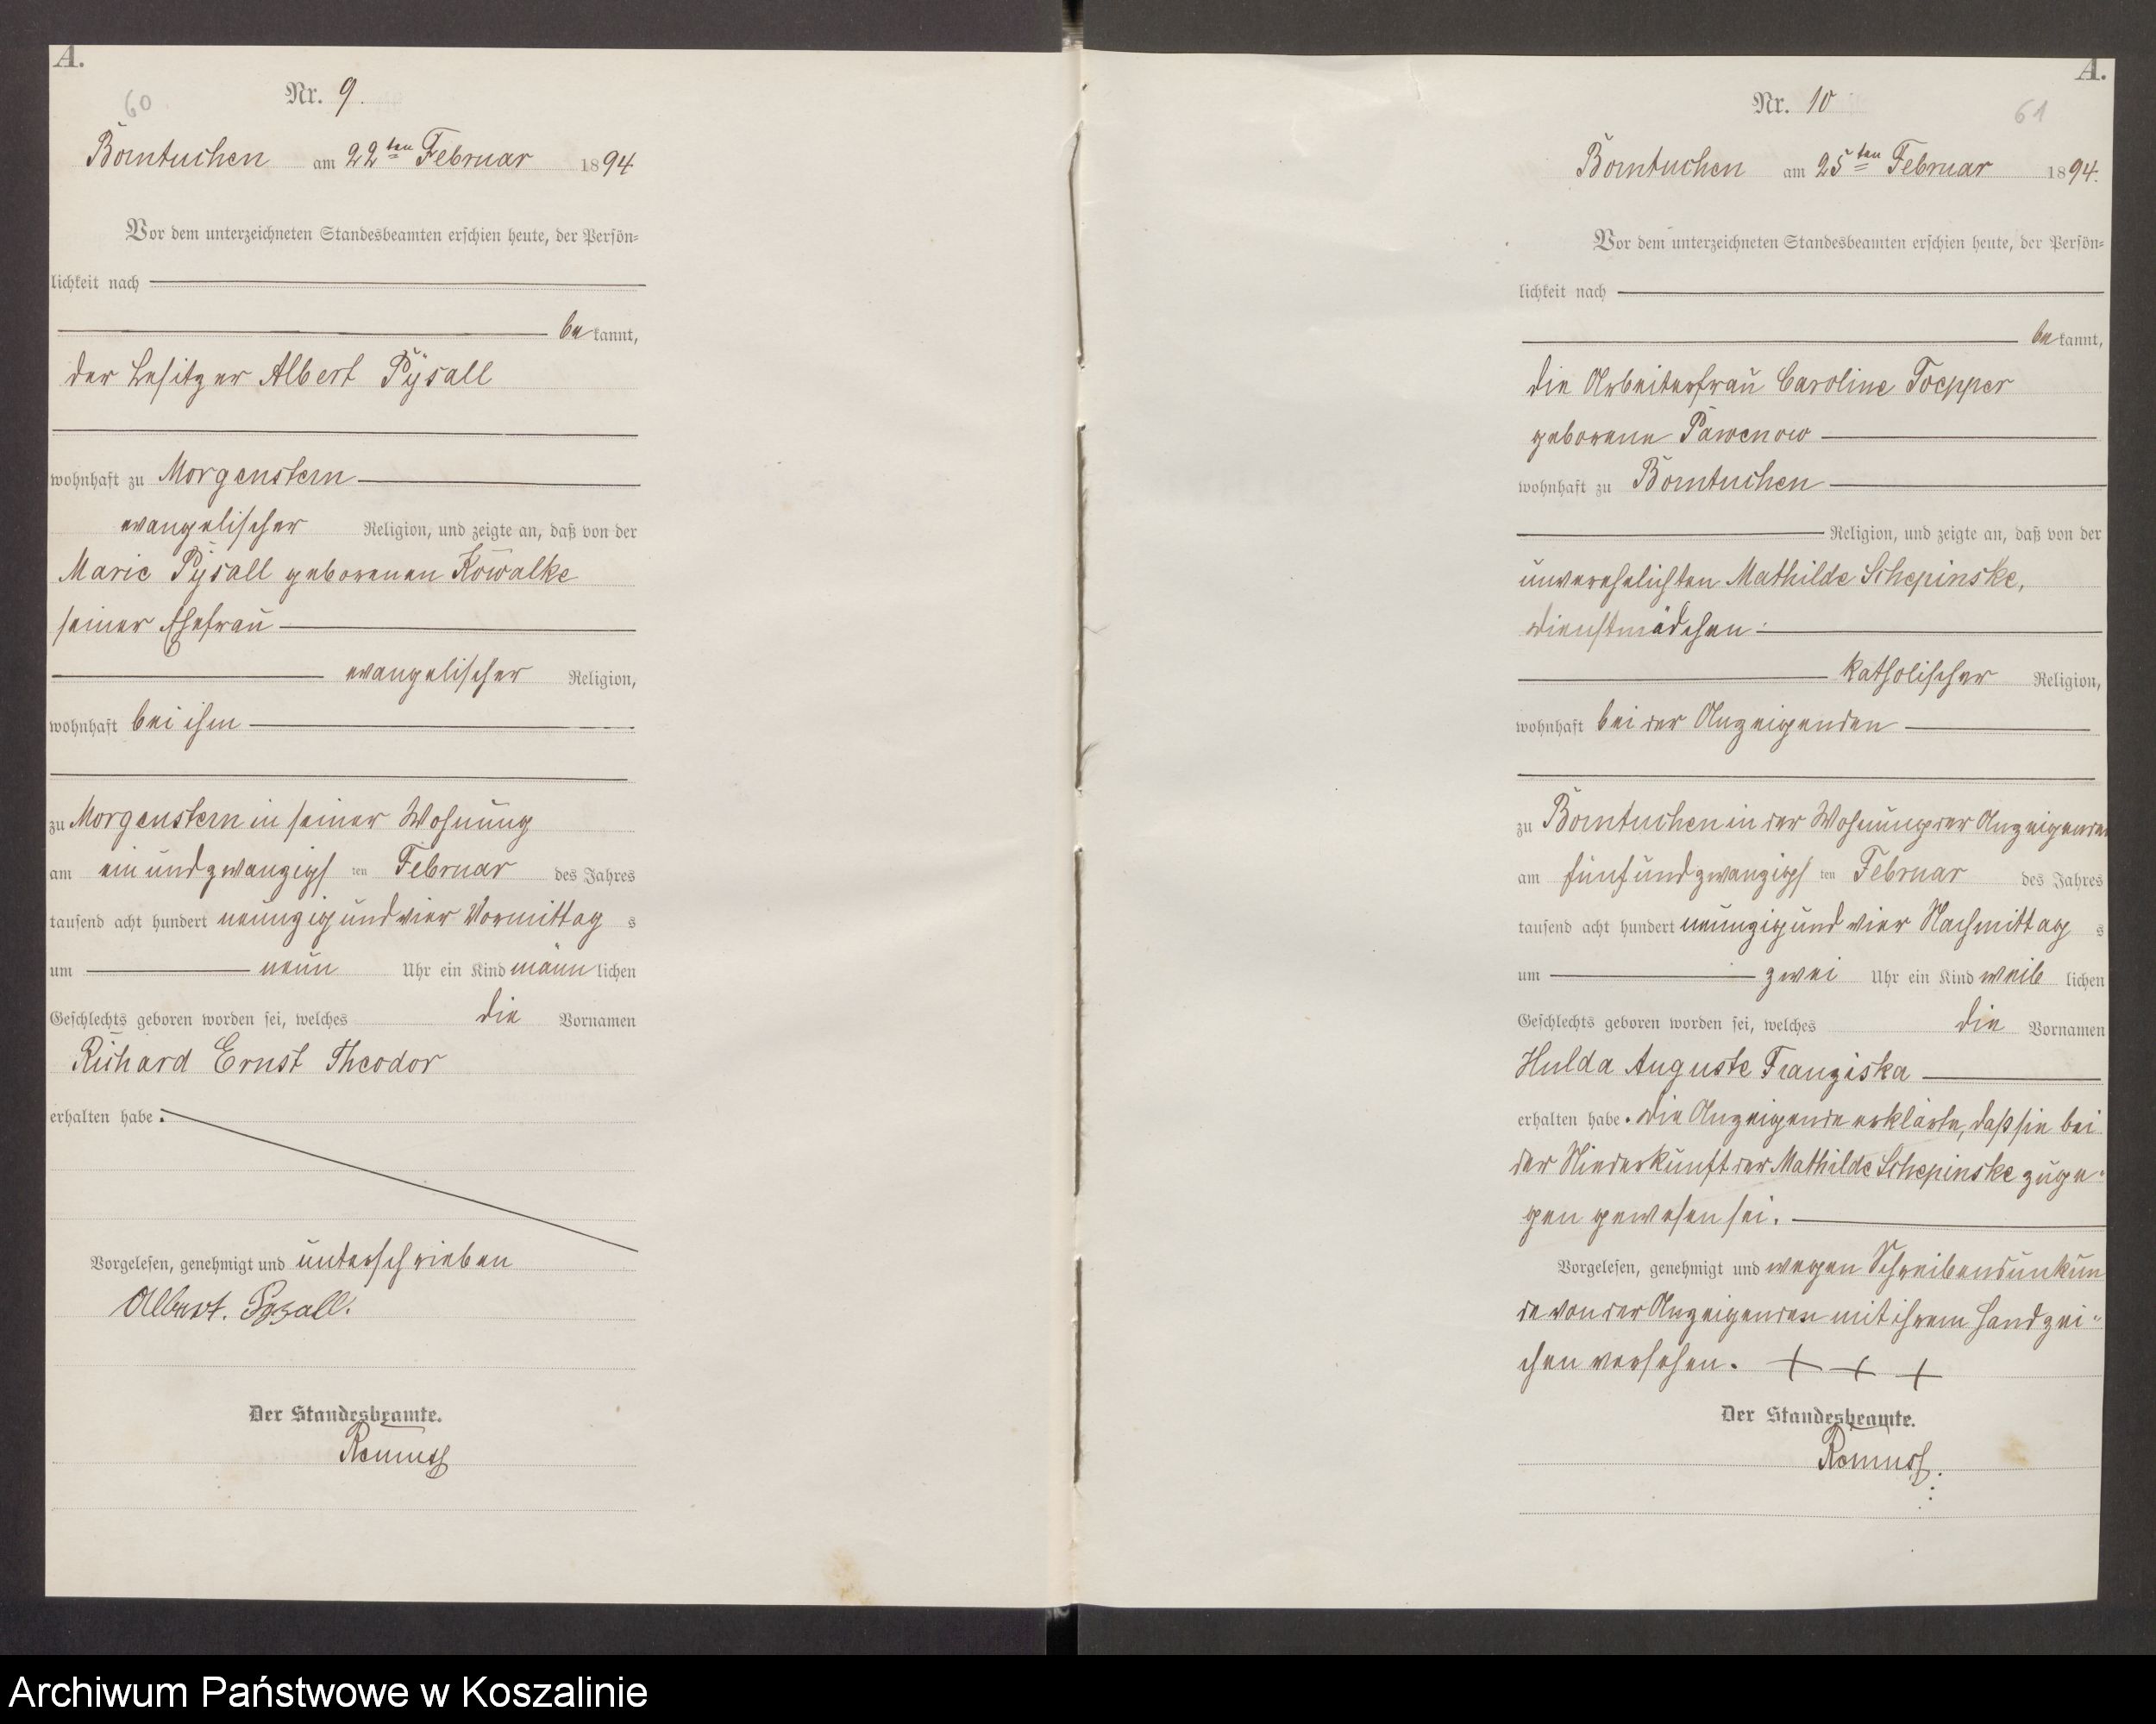 A.
60
Nr. 9.
Borntuchen am 22ten Februar 1894
Vor dem unterzeichneten Standesbeamten erschien heute, der Persön-
lichkeit nach
bekannt,
der Besitzer Albert Pysall
wohnhaft zu Morgenstern
evangelischer Religion, und zeigte an, daß von der
Marie Pysall geborenen Kowalke
seiner Ehefrau
evangelischer Religion,
wohnhaft bei ihm
zu Morgenstern in seiner Wohnung
am ein und zwanzigsten Februar des Jahres
tausend acht hundert neunzig und vier Vormittags
um neun Uhr ein Kind männlichen
Geschlechts geboren worden sei, welches die Vornamen
Richard Ernst Theodor
erhalten habe.
Vorgelesen, genehmigt und unterschrieben
Albert. Pysall.
Der Standesbeamte.
A.
Nr. 10
61
Borntuchen am 25ten Februar 1894.
Vor dem unterzeichneten Standesbeamten erschien heute, der Persön-
lichkeit nach
bekannt,
die Arbeiterfrau Caroline Toepper
geborene Pawenow
wohnhaft zu Borntuchen
Religion, und zeigte an, daß von der
unverehelichten Mathilde Schepinske,
Dienstmädchen
katholischer Religion,
wohnhaft bei der Anzeigenden
zu Borntuchen in der Wohnung der Anzeigenden
am fünf und zwanzigsten Februar des Jahres
tausend acht hundert neunzig und vier Nachmittags
um zwei Uhr ein Kind weiblichen
Geschlechts geboren worden sei, welches die Vornamen
Hulda Auguste Franziska
erhalten habe. Die Anzeigende erklärte, daß sie bei
der Niederkunft der Mathilde Schepinske zuge-
gen gewesen sei.
Vorgelesen, genehmigt und wegen Schreibensunkun
de von der Anzeigenden mit ihrem Handzei-
chen versehen. + + +
Der Standesbeamte.
Archiwum Państwowe w Koszalinie